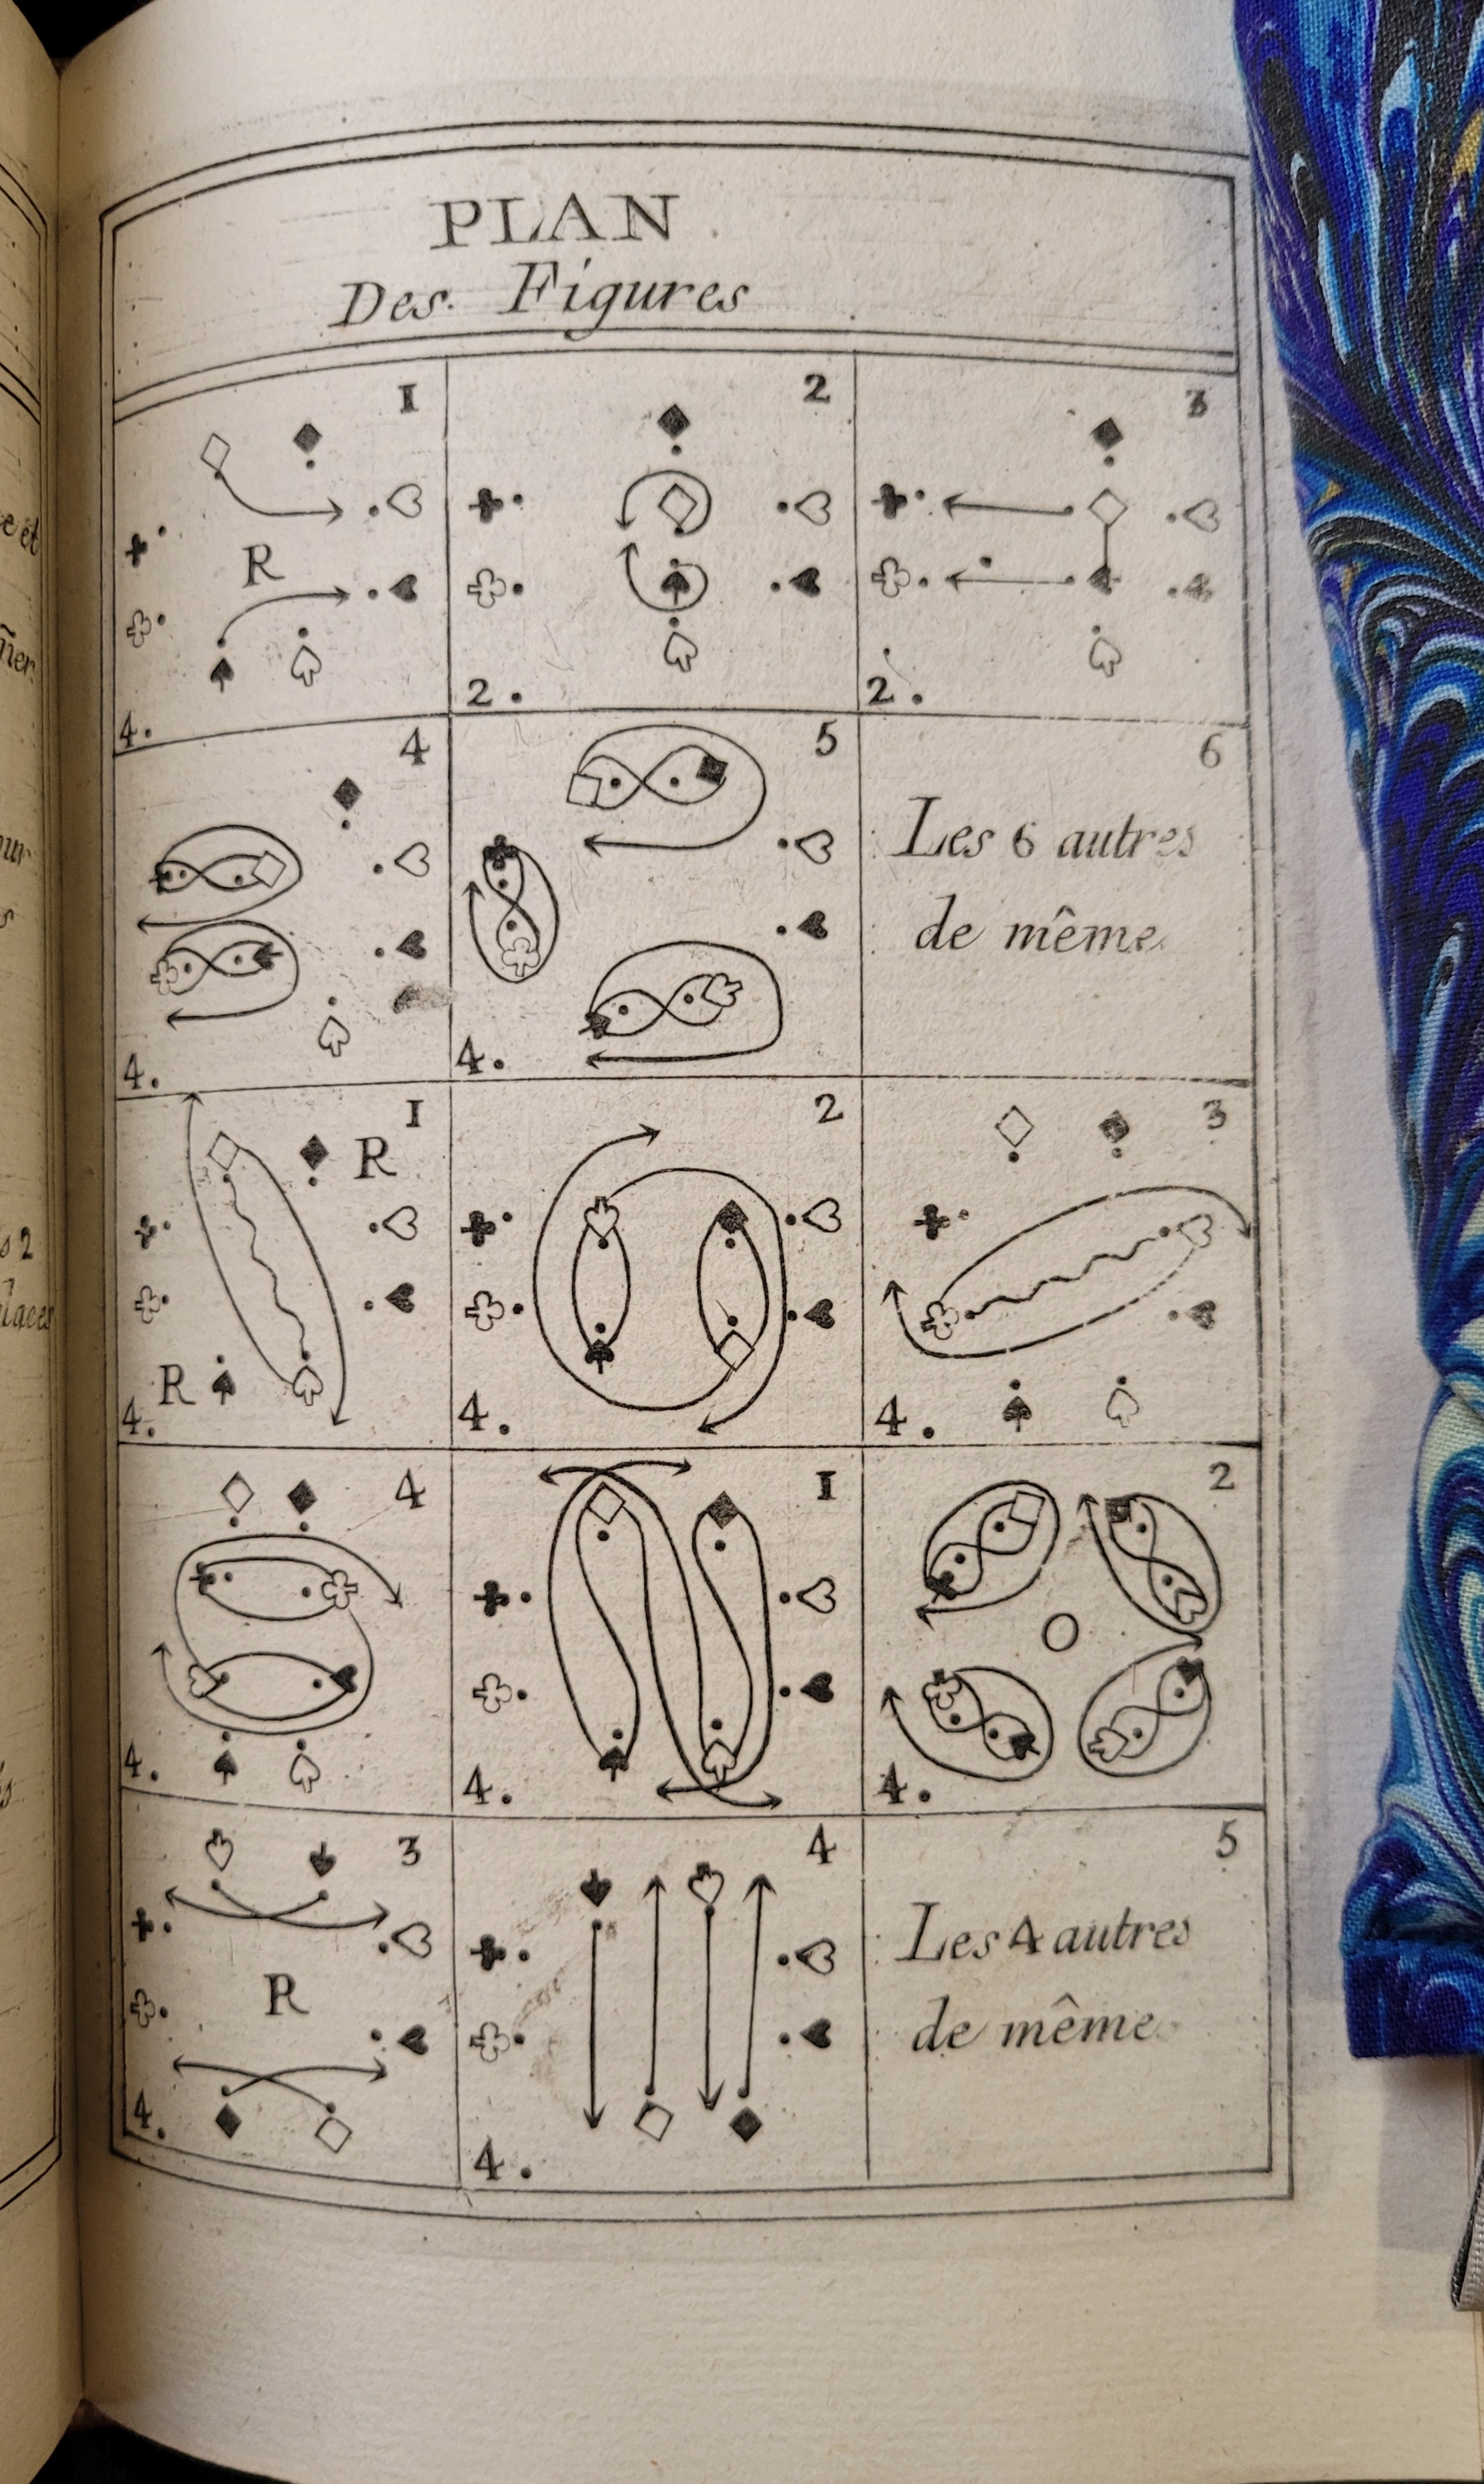 PLAN
Des. Figures
1
R
4.
2
2.
3
2.
4
4.
5
4.
6
Les 6 autres
de même
1
R
R
4.
2
4.
3
4.
4
4.
1
4.
2
4.
3
R
4.
4
4.
5
Les 4 autres
de même